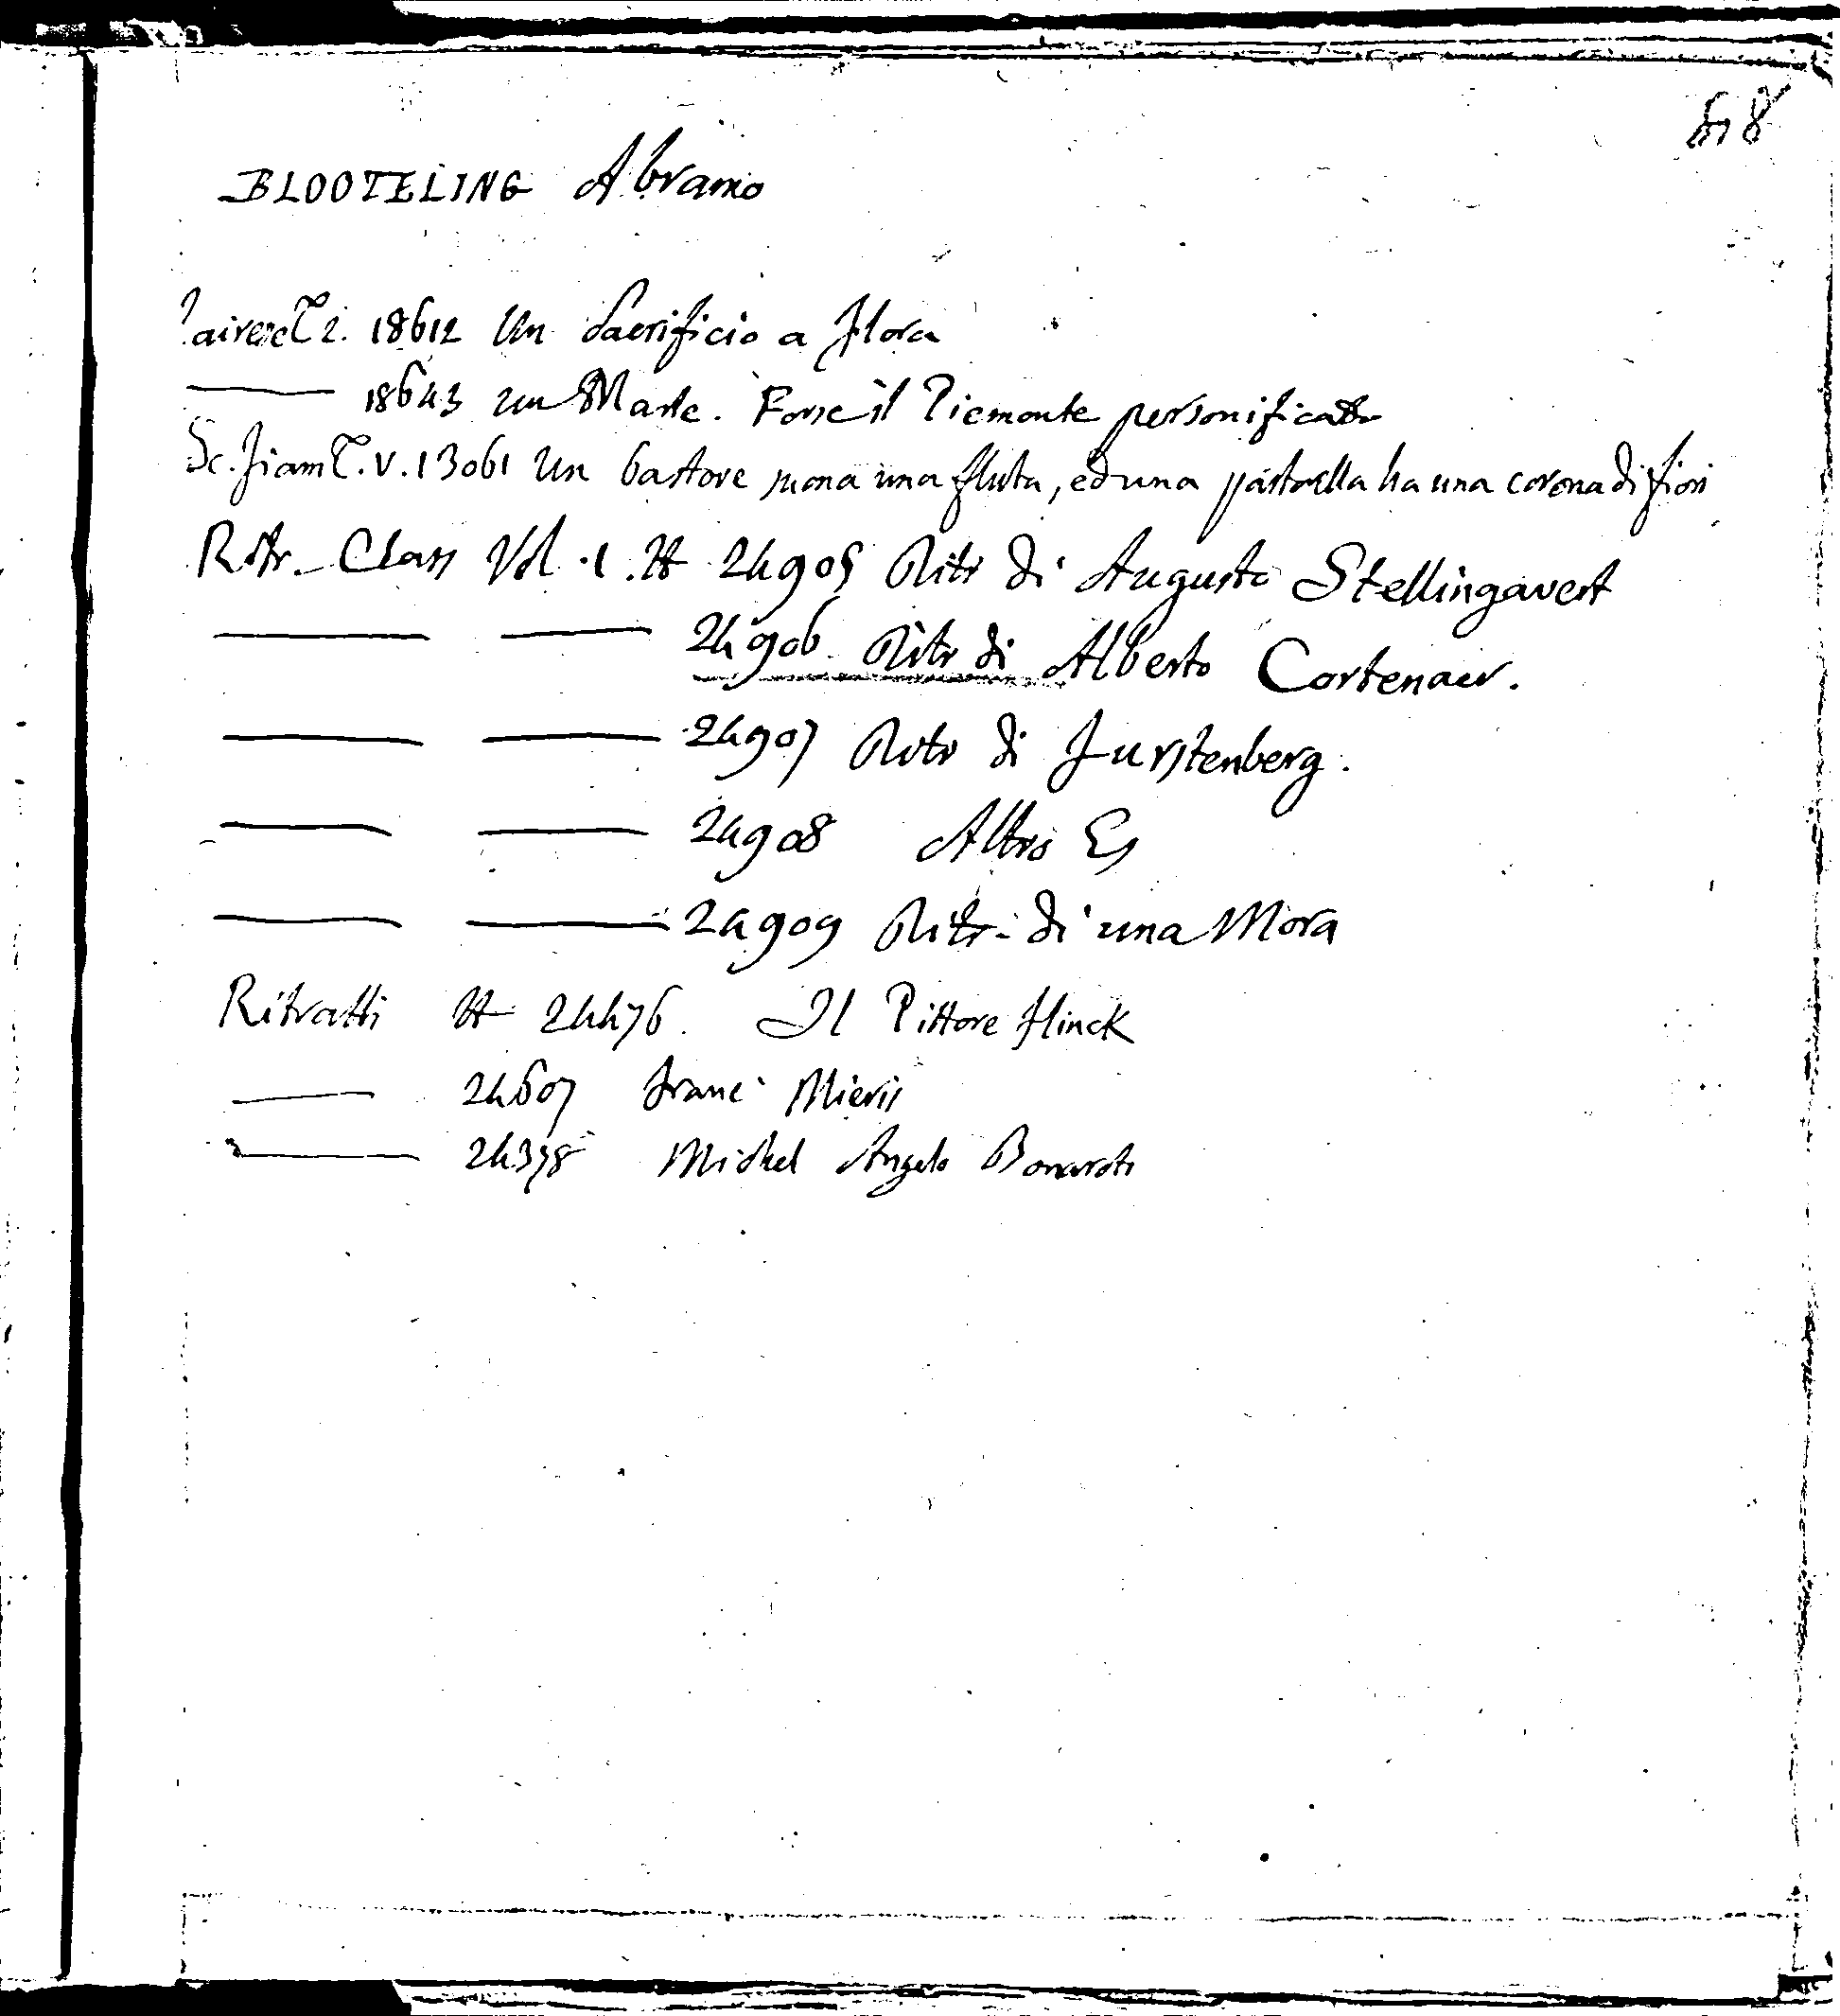 BLOOTELING Abramo
Lairesse T. 2. 18612 Un Sacrificio a Flora
18643 un Marte. Forse il Piemonte personificato
Sc. Fiam T. V. 13061 Un Pastore suona una fluta, ed una pastorella ha una corona di fiori
Ritr. Class Vol. 1. 24905 Ritr di Augusto Stellingavert
24906 Ritr di Alberto Cortenaer.
24907 Ritr di Furstenberg.
24908 Altro Es
24909 Ritr. di una Mora
Ritratti 24476. Il Pittore Flinck
24607 Franc Mieris
24378 Michel Angelo Bonaroti